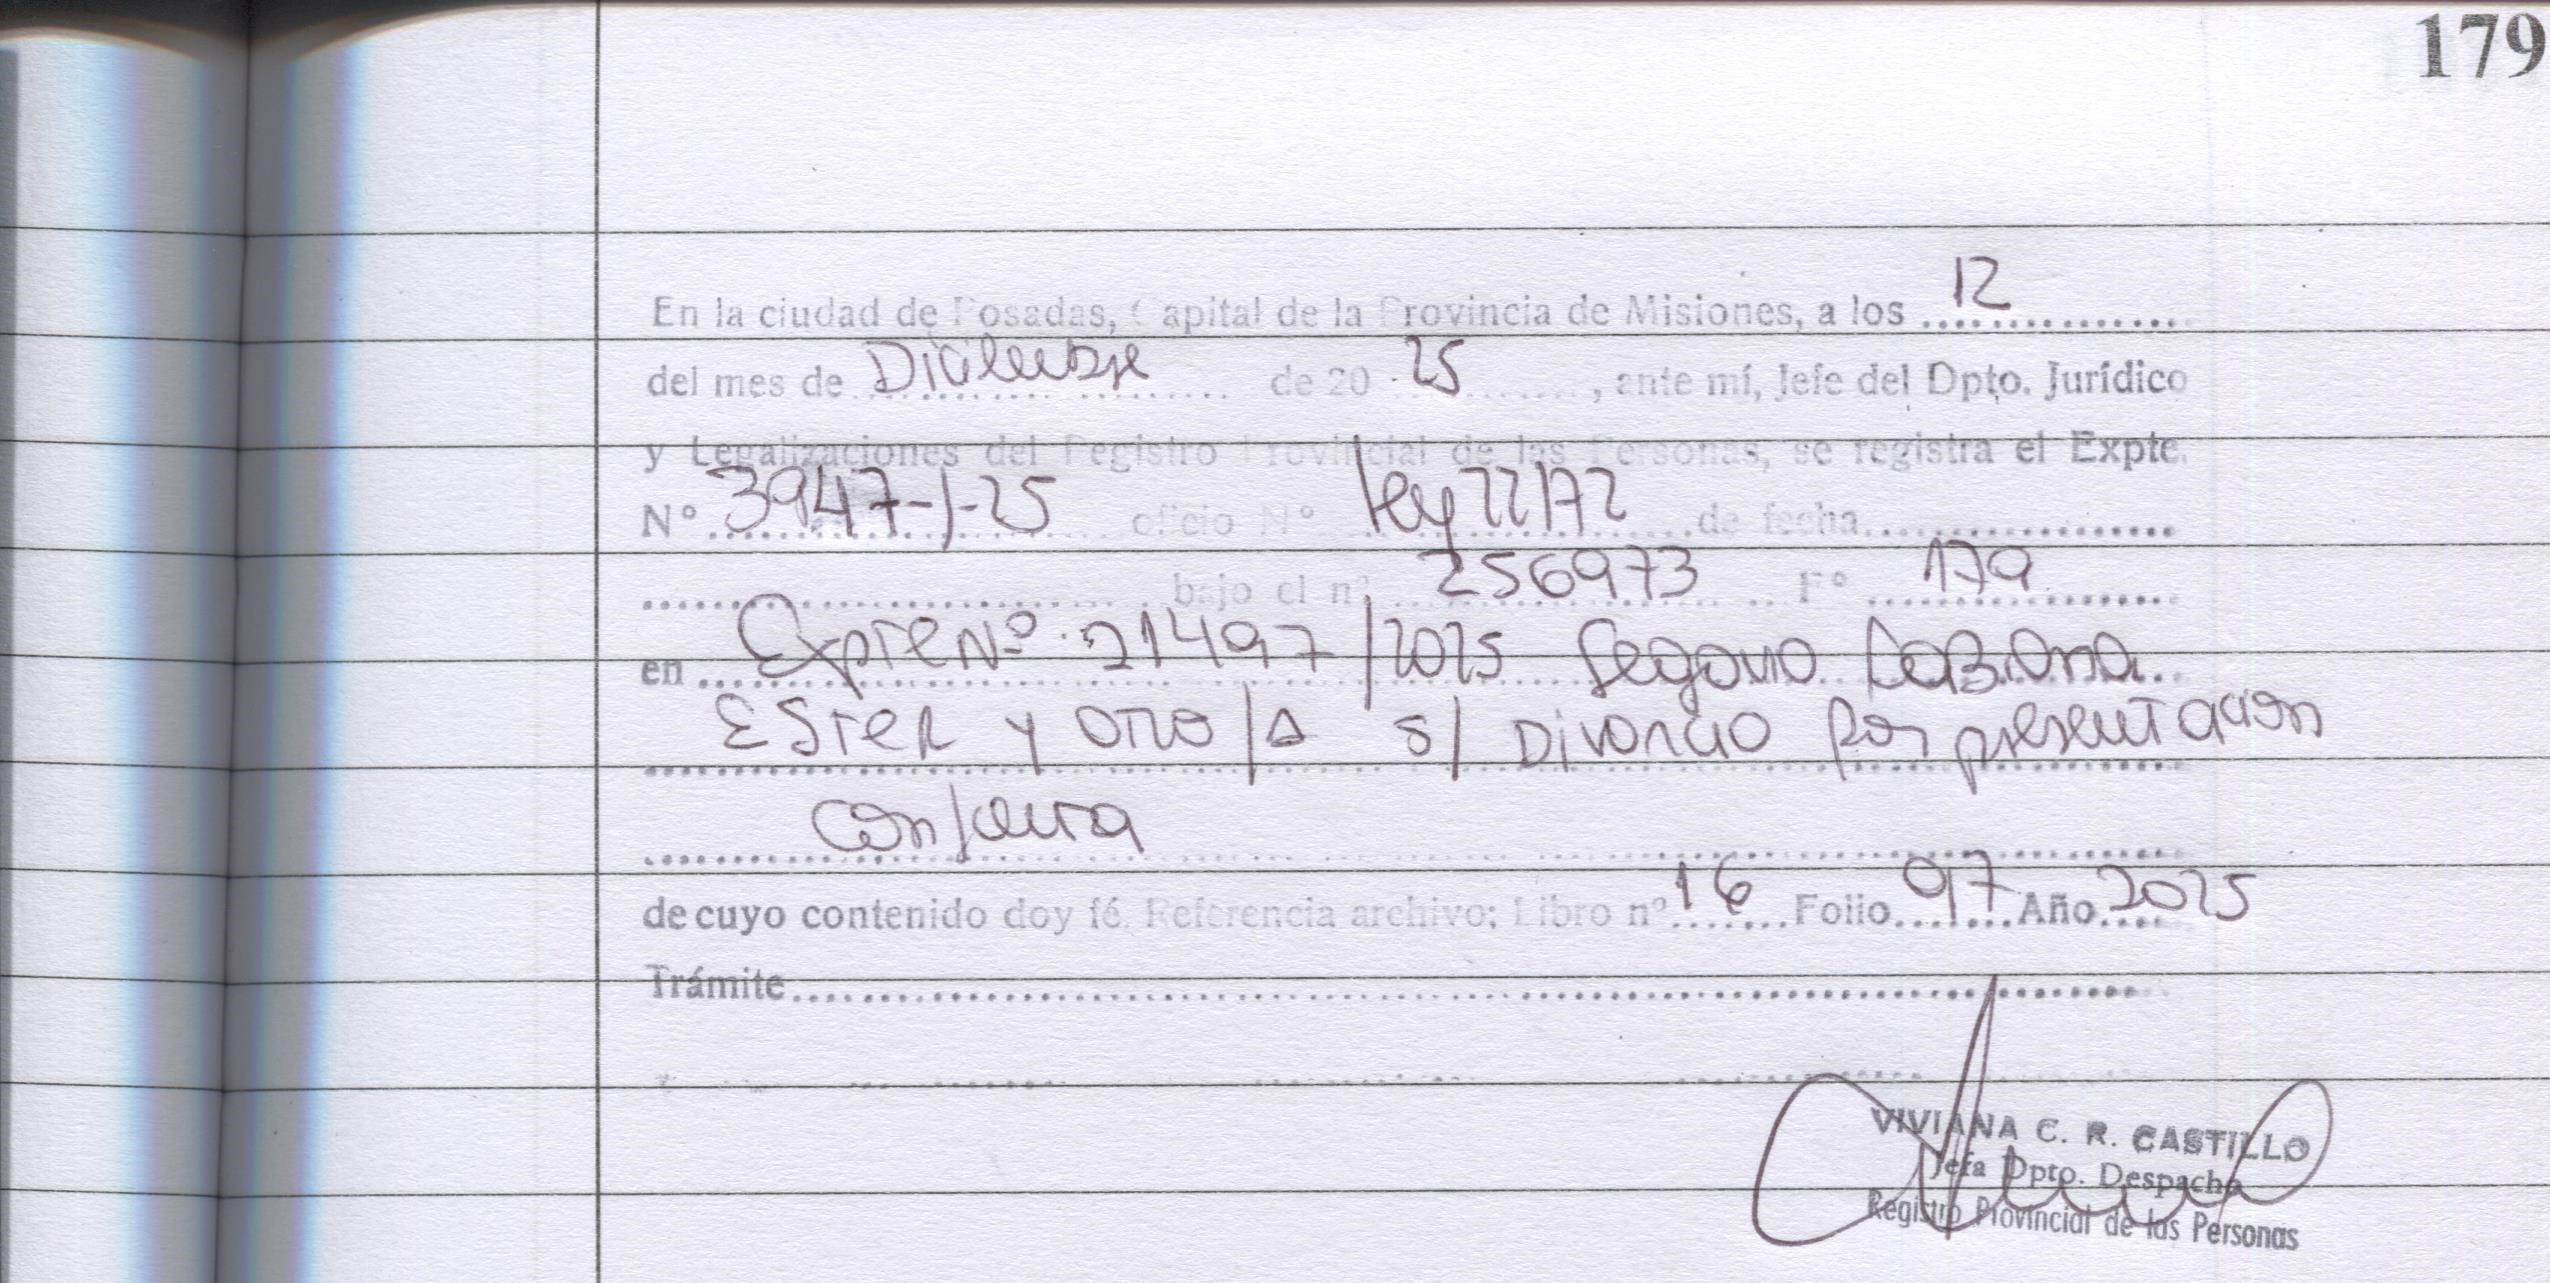 179
En la ciudad de Posadas, Capital de la Provincia de Misiones, a los 12
del mes de Diciembre de 20 25, ante mí, Jefe del Dpto. Jurídico
y Legalizaciones del Registro Provincial de las Personas, se registra el Expte.
Nº 3947-J-25 oficio Nº ley 22172 de fecha
bajo el nº 256973 Fº 179
en Expte Nº 21497/2025 Segovia Fabiana
Ester y otro/a s/ Divorcio por presentacion
conjunta
de cuyo contenido doy fé. Referencia archivo; Libro nº 16 Folio 97 Año 2025
Trámite
VIVIANA C. R. CASTILLO
Jefa Dpto. Despacho
Registro Provincial de las Personas